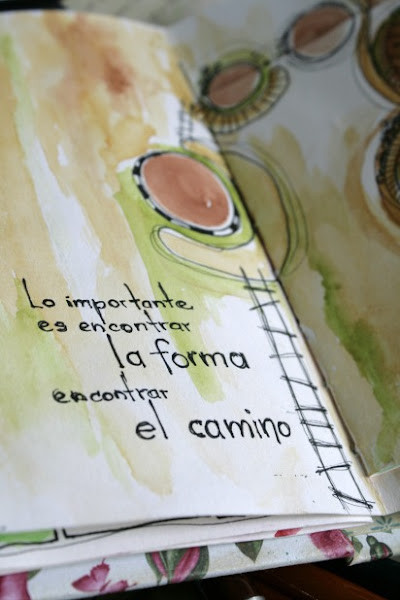 Lo importante
es encontrar
la forma
encontrar
el camino